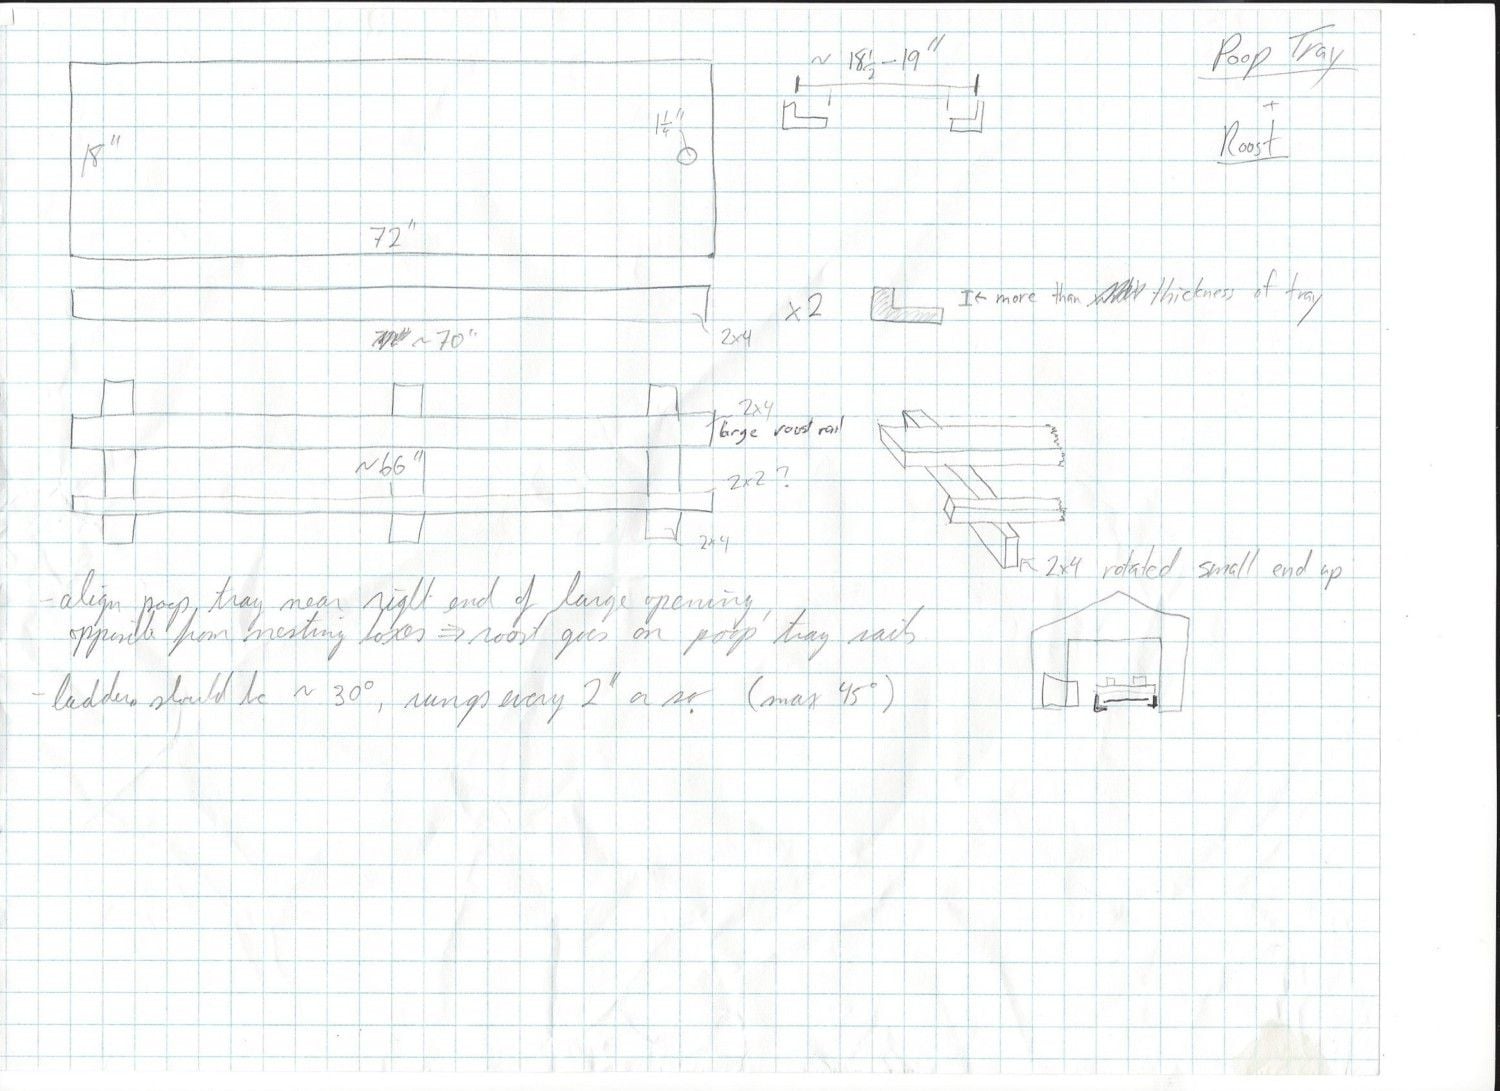 Poop Tray
+
Roost
~ 18½ - 19"
18"
1¼"
72"
~ 70"
2x4
x2
I← more than thickness of tray
2x4
large roost rail
~66"
2x2?
2x4
2x4 rotated small end up
- align poop tray near right end of large opening,
opposite from nesting boxes ⇒ roost goes on poop tray rails
- ladders should be ~ 30°, rungs every 2" or so. (max 45°)